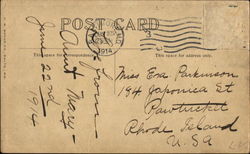 POST CARD
1914
This space for
This space for address only.
From
Aunt Mary
June 22nd
1914
Miss Eva Parkinson
194 Japonica St
Pawtucket
Rhode Island
U.S.A